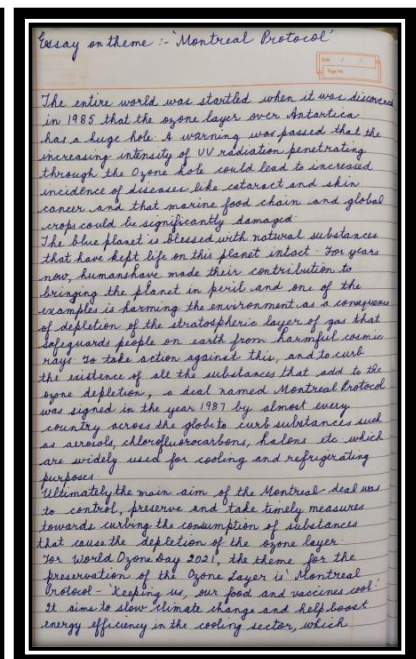 Essay on theme :- 'Montreal Protocol'
Date / /
Page No.
The entire world was startled when it was discovered
in 1985 that the ozone layer over Antartica
has a huge hole. A warning was passed that the
increasing intensity of UV radiation penetrating
through the Ozone hole could lead to increased
incidence of diseases like cataract and skin
cancer and that marine food chain and global
crops could be significantly damaged.
The blue planet is blessed with natural substances
that have kept life on this planet intact. For years
now, humans have made their contribution to
bringing the planet in peril and one of the
examples is harming the environment as a consequence
of depletion of the stratospheric layer of gas that
safeguards people on earth from harmful cosmic
rays. To take action against this, and to curb
the existence of all the substances that add to the
ozone depletion, a deal named Montreal Protocol
was signed in the year 1987 by almost every
country across the globe to curb substances such
as aerosols, chlorofluorocarbons, halons etc which
are widely used for cooling and refrigirating
purposes.
Ultimately the main aim of the Montreal deal was
to control, preserve and take timely measures
towards curbing the consumption of substances
that cause the depletion of the ozone layer.
For World Ozone Day 2021, the theme for the
preservation of the Ozone Layer is 'Montreal
Protocol - Keeping us, our food and vaccines cool.'
It aims to slow climate change and help boost
energy efficiency in the cooling sector, which